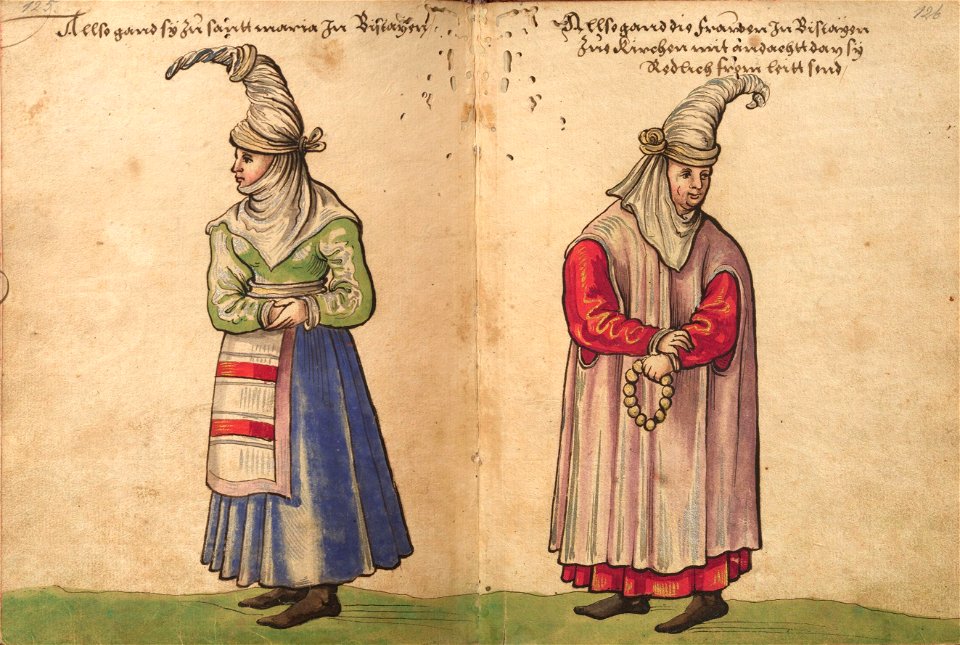 125.
Allso gand sy zu͂ sanntt maria In Biscayen
126
Allso gand die frawen In Biscayen
Zue Kirchen mit andachtt das sy
Redlich from leitt send